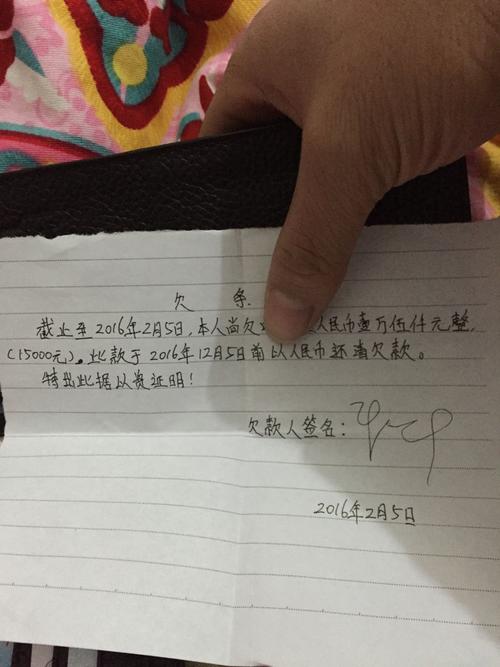 欠 条
截止至2016年2月5日,本人尚欠 人民币壹万伍仟元整,
(15000元)。此款于2016年12月5日前以人民币还清欠款。
特出此据以资证明!
欠款人签名:
2016年2月5日